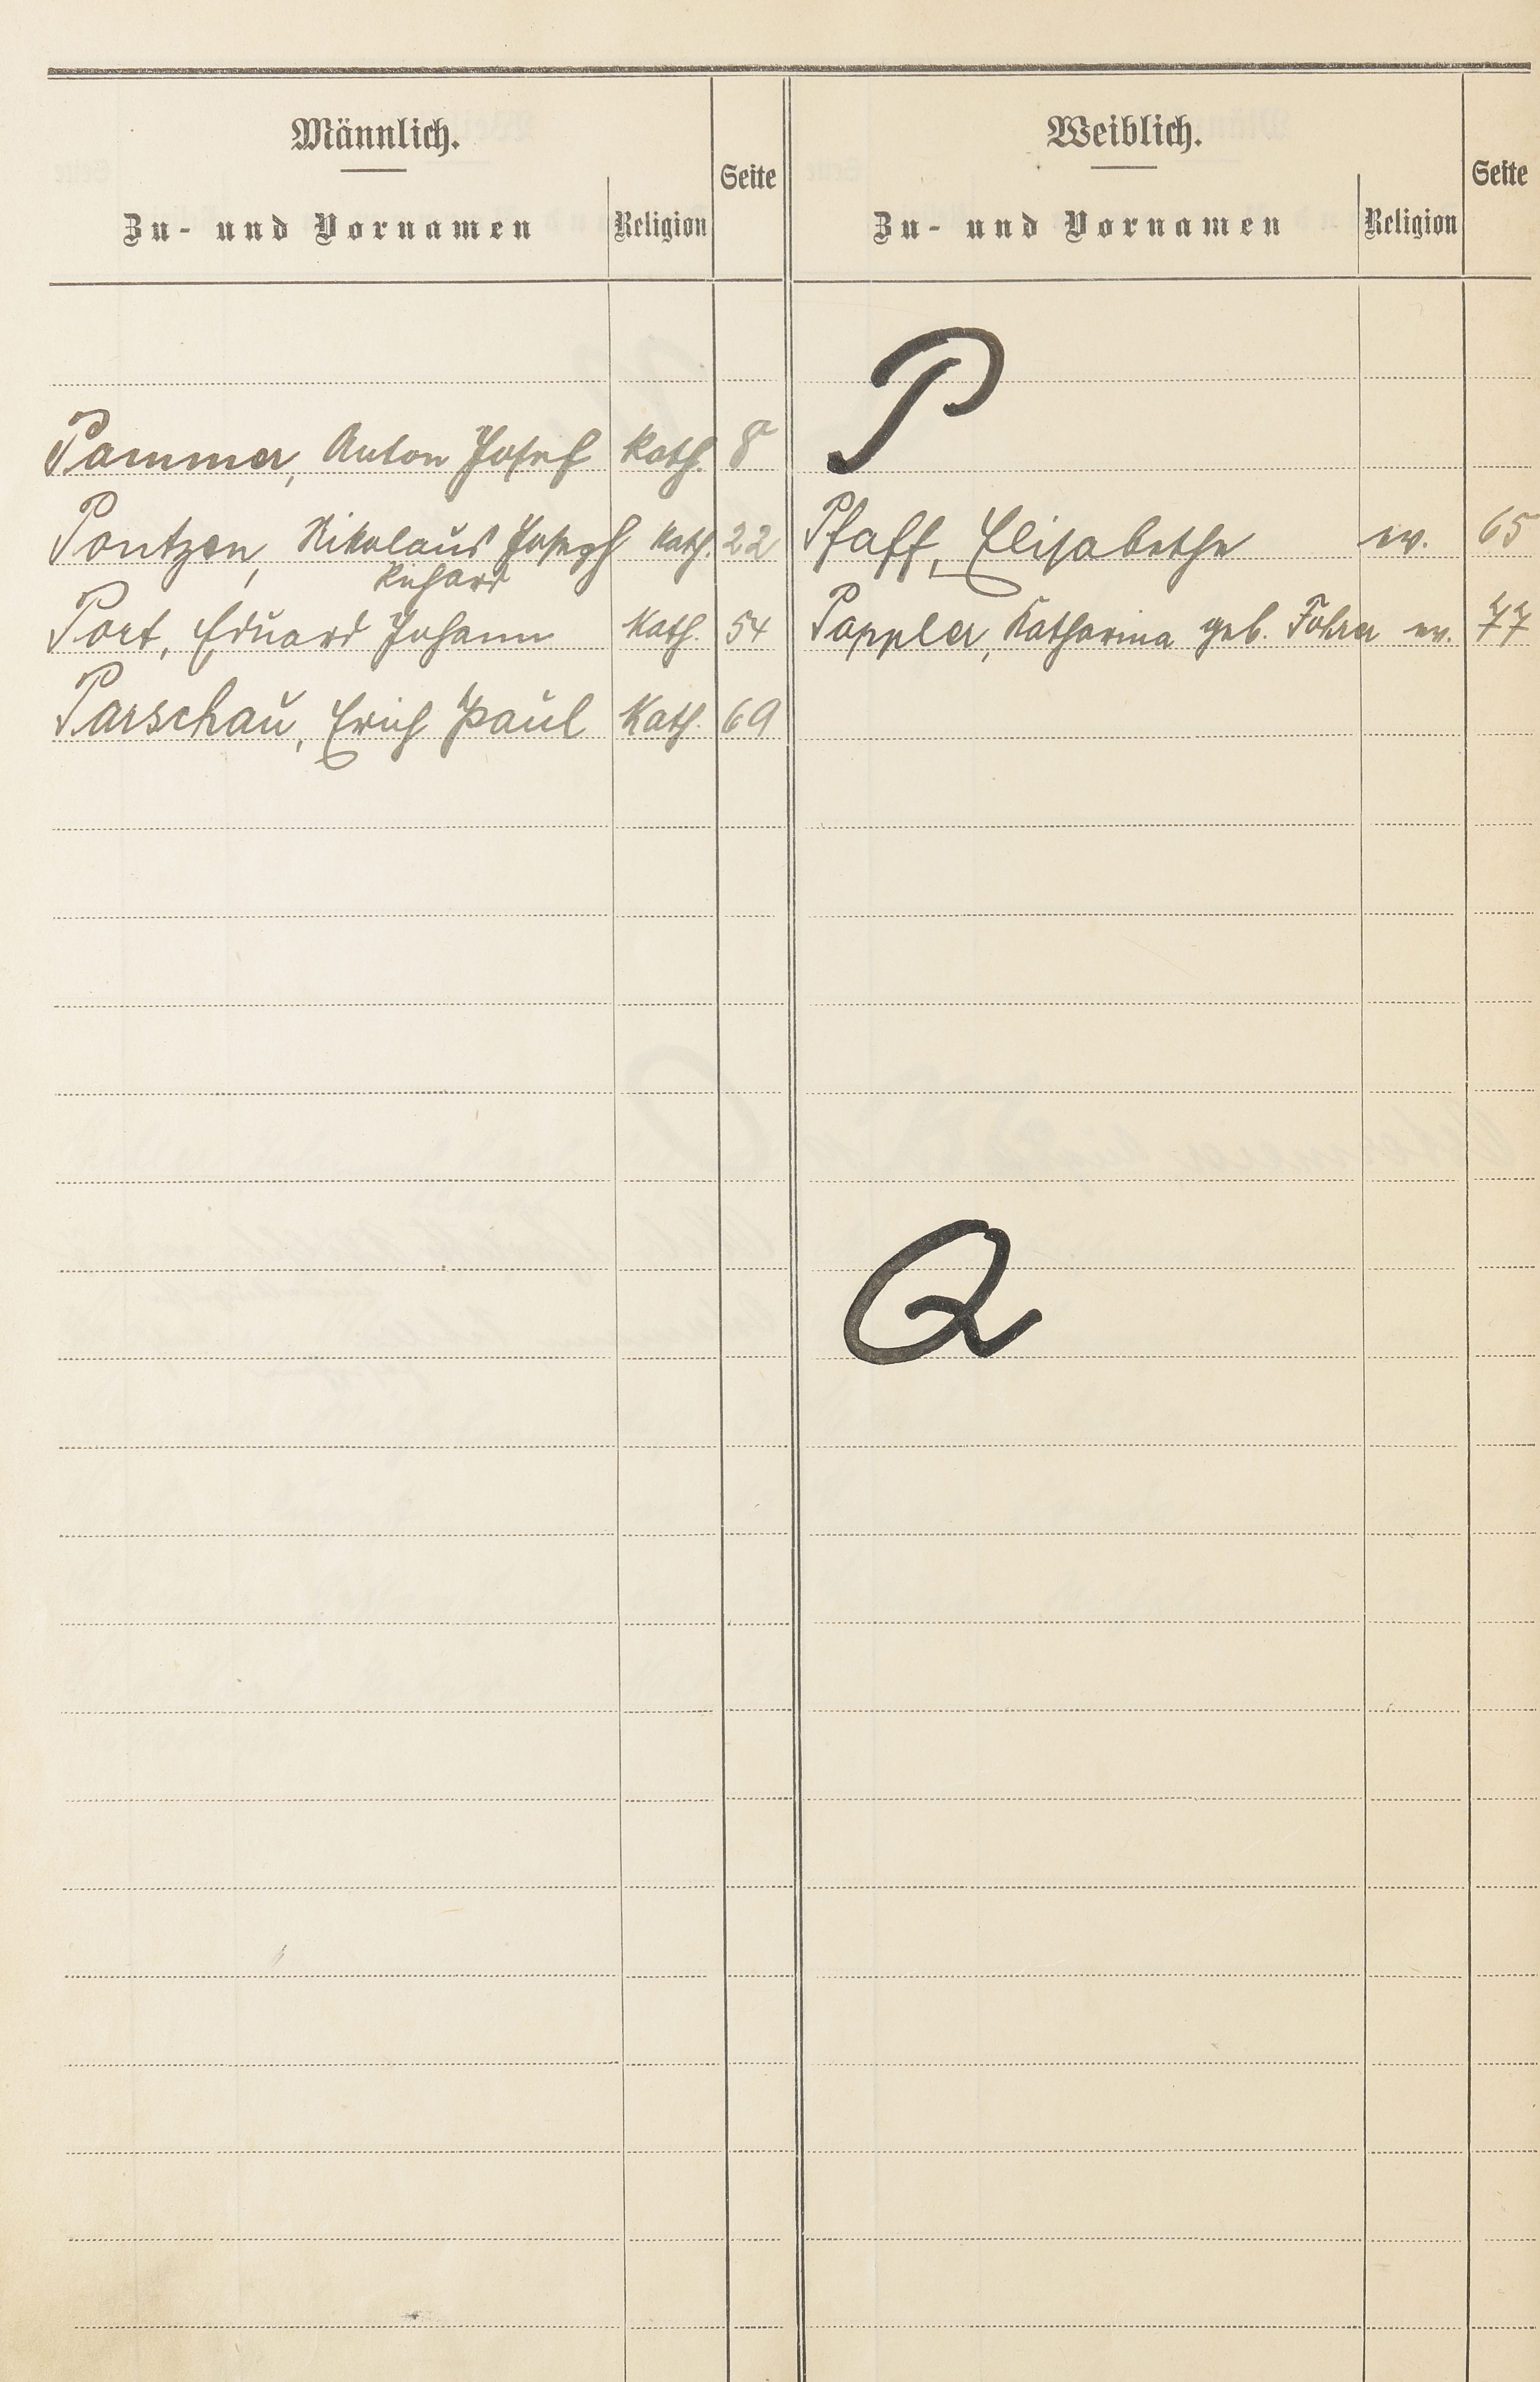 Männlich.
Zu- und Vornamen
Religion
Seite
Weiblich.
Zu- und Vornamen
Religion
Seite
P
Pammer, Anton Josef kath. 8
Pontzen, Nikolaus Joseph kath. 22
Richard
Port, Eduard Johann kath. 54
Parschau, Erich Paul kath. 69
Pfaff, Elisabethe ev. 65
Pappler, Katharina geb. Fohrer ev. 77
Q